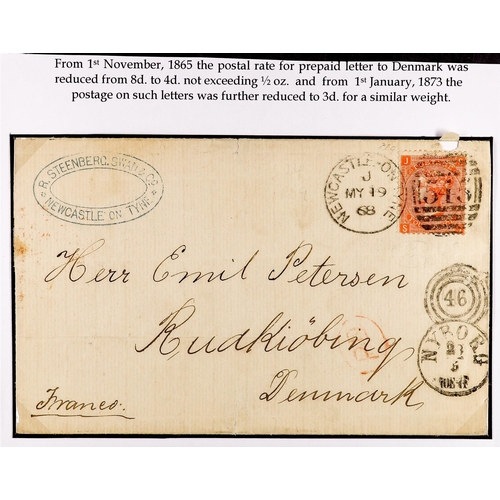 From 1st November, 1865 the postal rate for prepaid letter to Denmark was
reduced from 8d. to 4d. not exceeding ½ oz. and from 1st January, 1873 the
postage on such letters was further reduced to 3d. for a similar weight.
R. STEENBERG, SWAN & Co.
NEWCASTLE ON TYNE
NEWCASTLE-ON-TYNE
J
MY 19
68
J
545
S
Herr Emil Petersen
Rudkiöbing
Denmark
Franco.
46
NYBORG